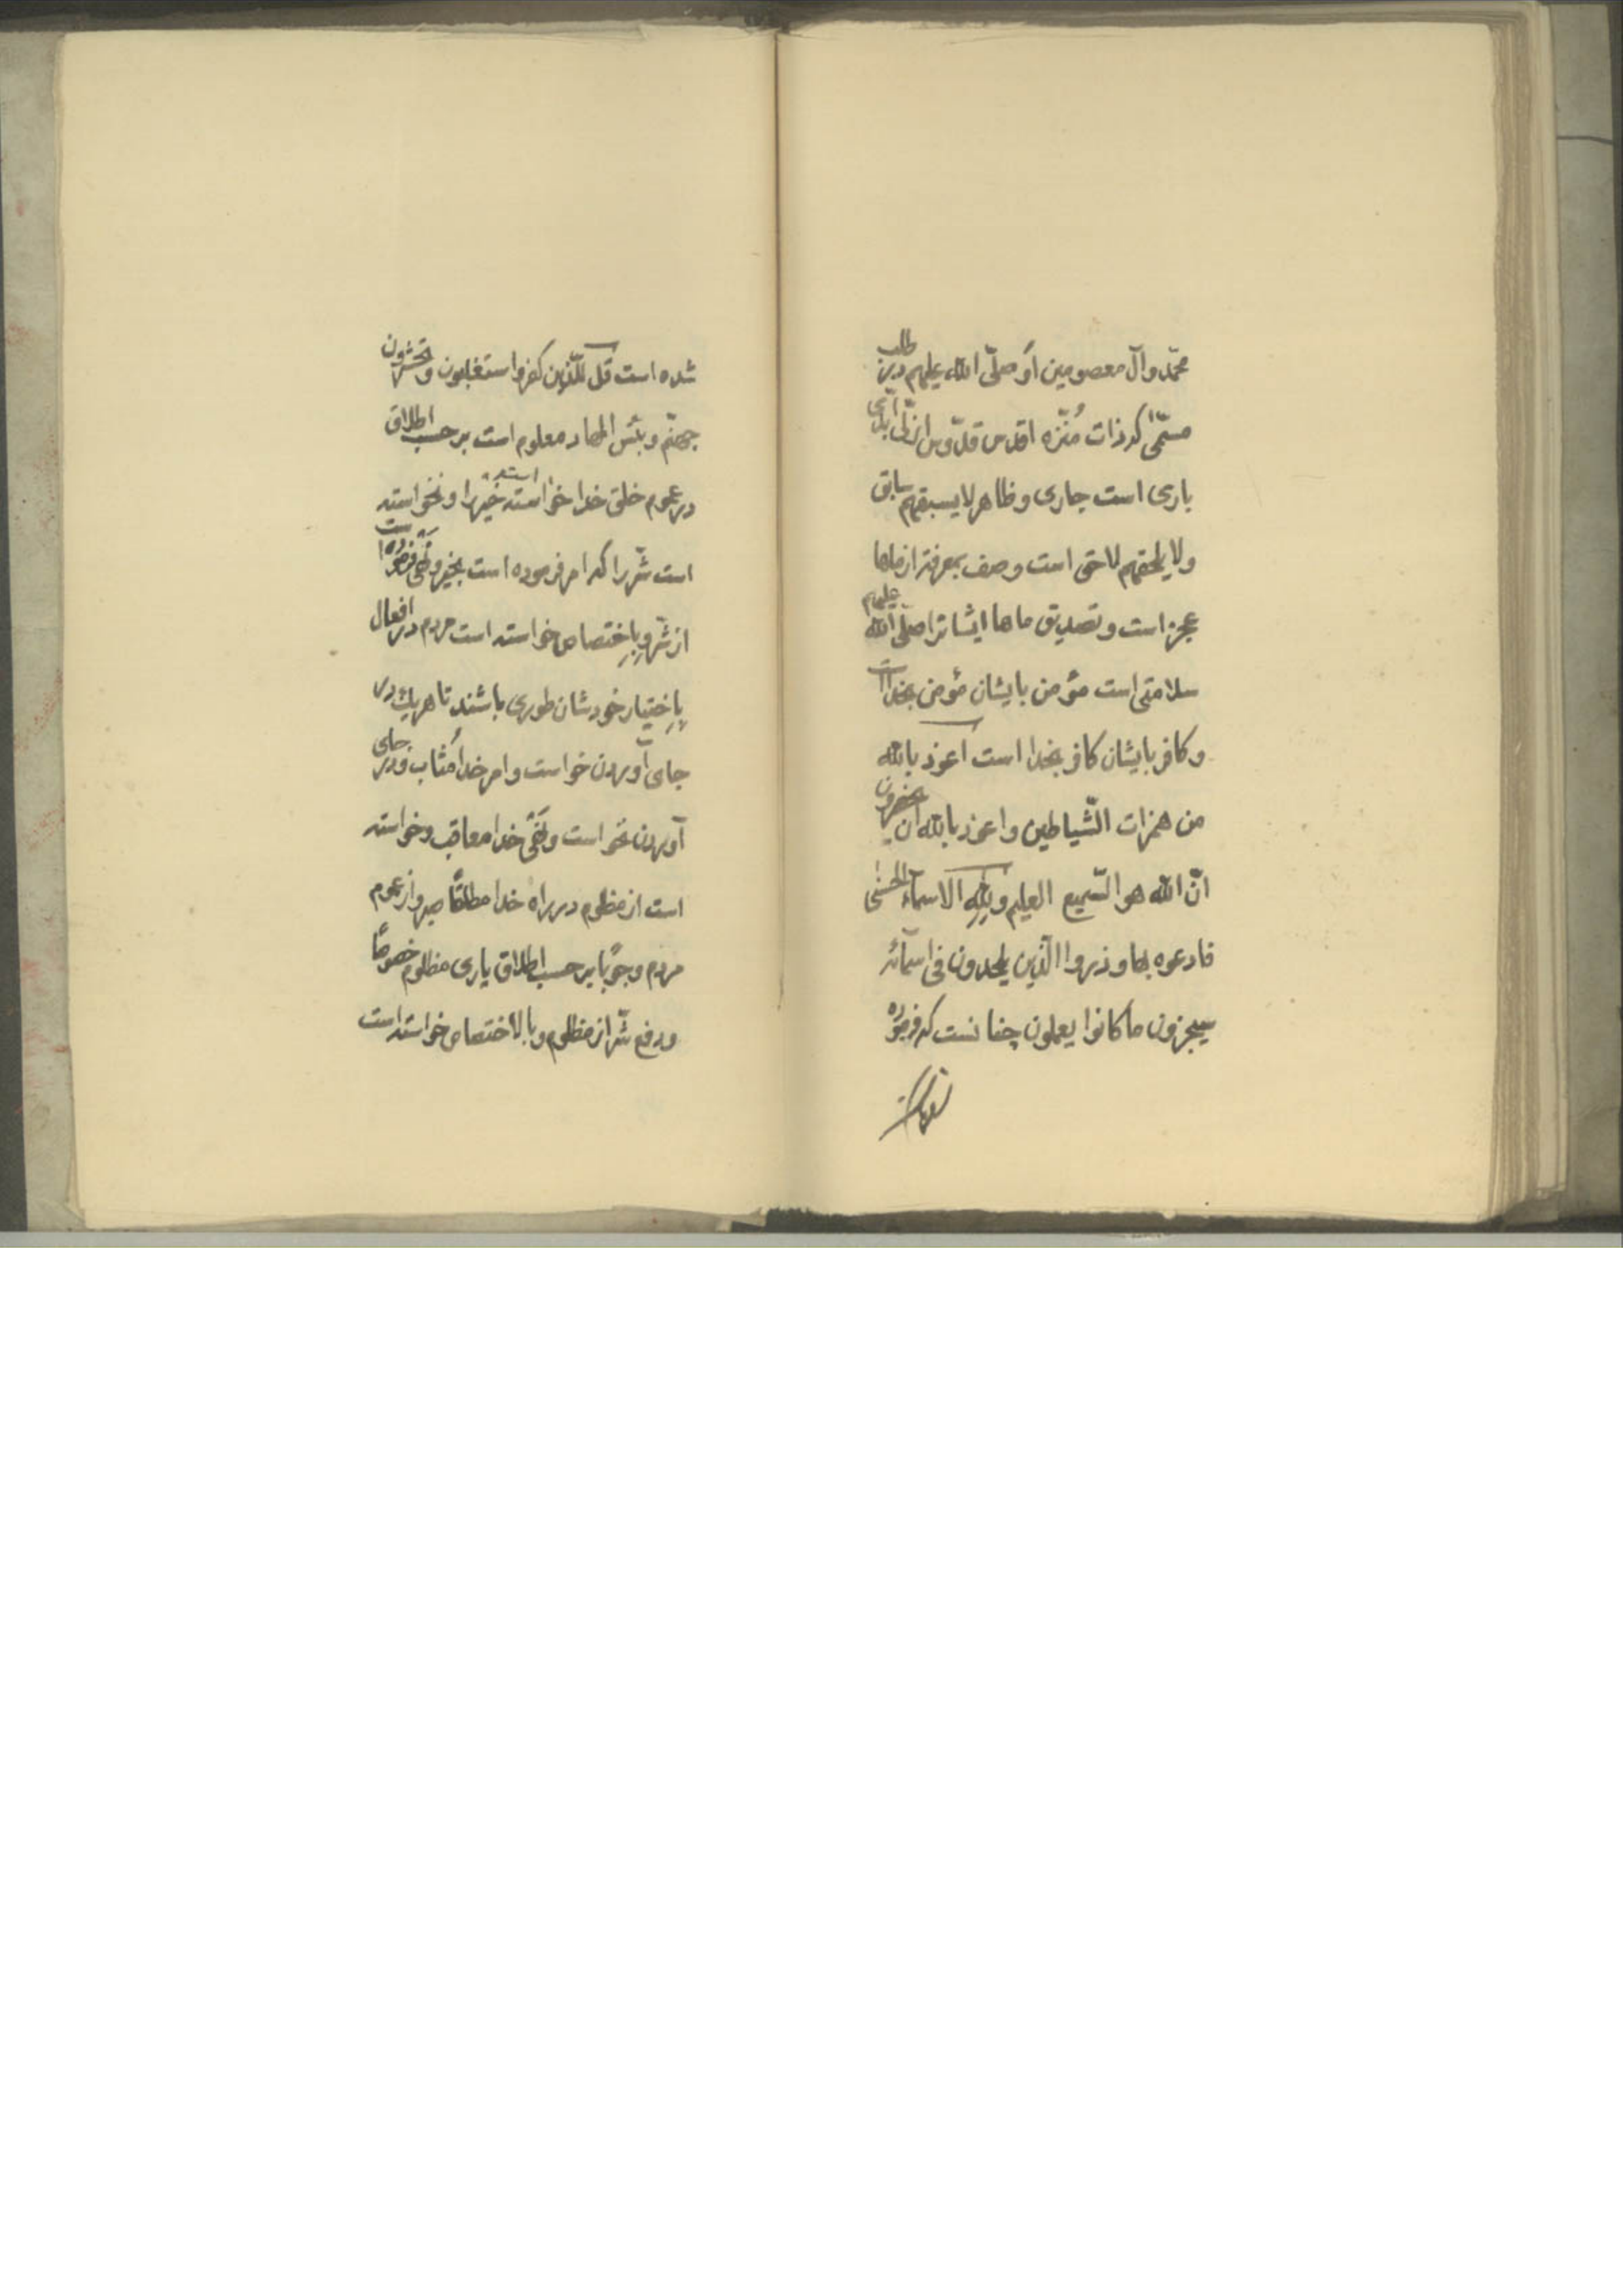 محمّد وآل معصومین او صلّی الله علیهم در طلب
مسمّی که ذات مُنّزه اقدس قدّوس ازلی
باری است جاری و ظاهر لا یسبقهم سابق
ولا یلحقهم لاحق است وصف بمعرفة از ماها
عجز است و تصدیق ماها ایشانرا صلّی الله علیهم
سلامتی است مؤمن بایشان مؤمن بخدا است
و کافر بایشان کافر بخدا است اعوذ بالله
من همزات الشّیاطین و اعوذ بالله ان یحضرون
انّ الله هو السّمیع العلیم ولِلّهِ الاسمآء الحسنی
فادعوه بها و ذروا الّذین یلحدون فی اسمآئه
سیجزون ما کانوا یعملون چنانست که فرموده
شده است قل للّذین کفروا ستغلبون و تحشرون
جهنّم و بئس المهاد معلوم است بر حسب اطلاق
در عموم خلق خدا خواسته است خیر را و نخواسته
است شّر را که امر فرموده است بخیر و نهی فرموده است
از شّر و باِختصاص خواسته است مردم در افعال
باِختیار خودشان طوری باشند تا هر یك در
جای آوردن خواست و امر خدا مُثاب و در جای
آوردن نخواست و نَهی خدا معاقب و خواسته
است از مظلوم در راه خدا مطلقًا صبر و از عموم
مردم وجوبًا بر حسب اطلاق یاری مظلوم خصوصًا
و دفع شّر از مظلوم و بالاختصاص خواسته است